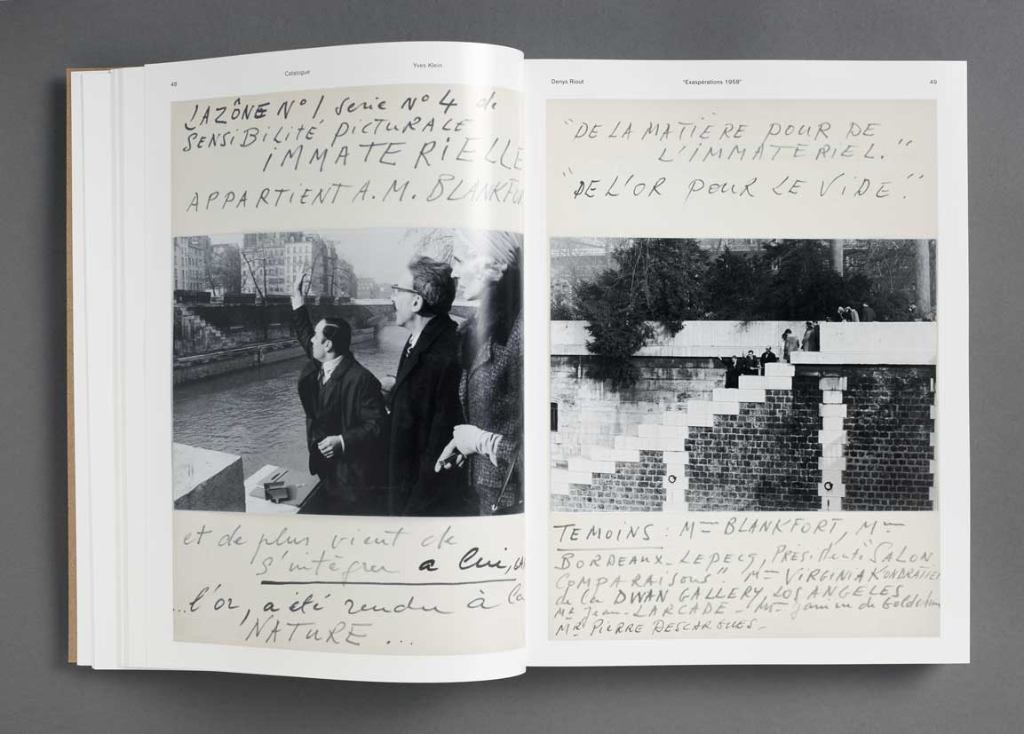 48
Catalogue
Yves Klein
LA ZÔNE N° 1 serie N° 4 de
SENSIBILITÉ PICTURALE
IMMATERIELLE
APPARTIENT A. M. BLANKFO
et de plus vient de
s'intégrer a lui,
...l'or, a été rendu à la
NATURE ...
Denys Riout
"Exaspérations 1958"
49
"DE LA MATIÈRE POUR DE
L'IMMATERIEL."
"DE L'OR POUR LE VIDE".
TEMOINS : Me BLANKFORT, Me
BORDEAUX-LEPECQ, Présidente "SALON
COMPARAISONS". Me VIRGINIA KONDRATIEF
de la DWAN GALLERY, LOS ANGELES
Mr Jean-LARCADE -
MR PIERRE DESCARGUES-